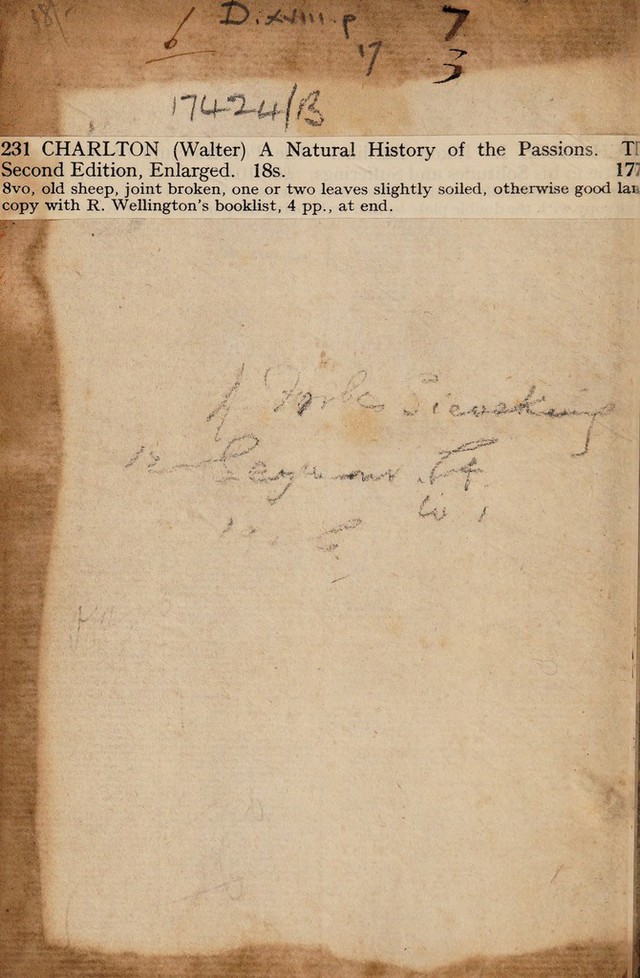 18/-
D.xviii.p 7
6 17 3
17424/B
231 CHARLTON (Walter) A Natural History of the Passions.
Second Edition, Enlarged. 18s. 177
8vo, old sheep, joint broken, one or two leaves slightly soiled, otherwise good
copy with R. Wellington's booklist, 4 pp., at end.
Forbes Sieveking
12 Seymour St
W 1